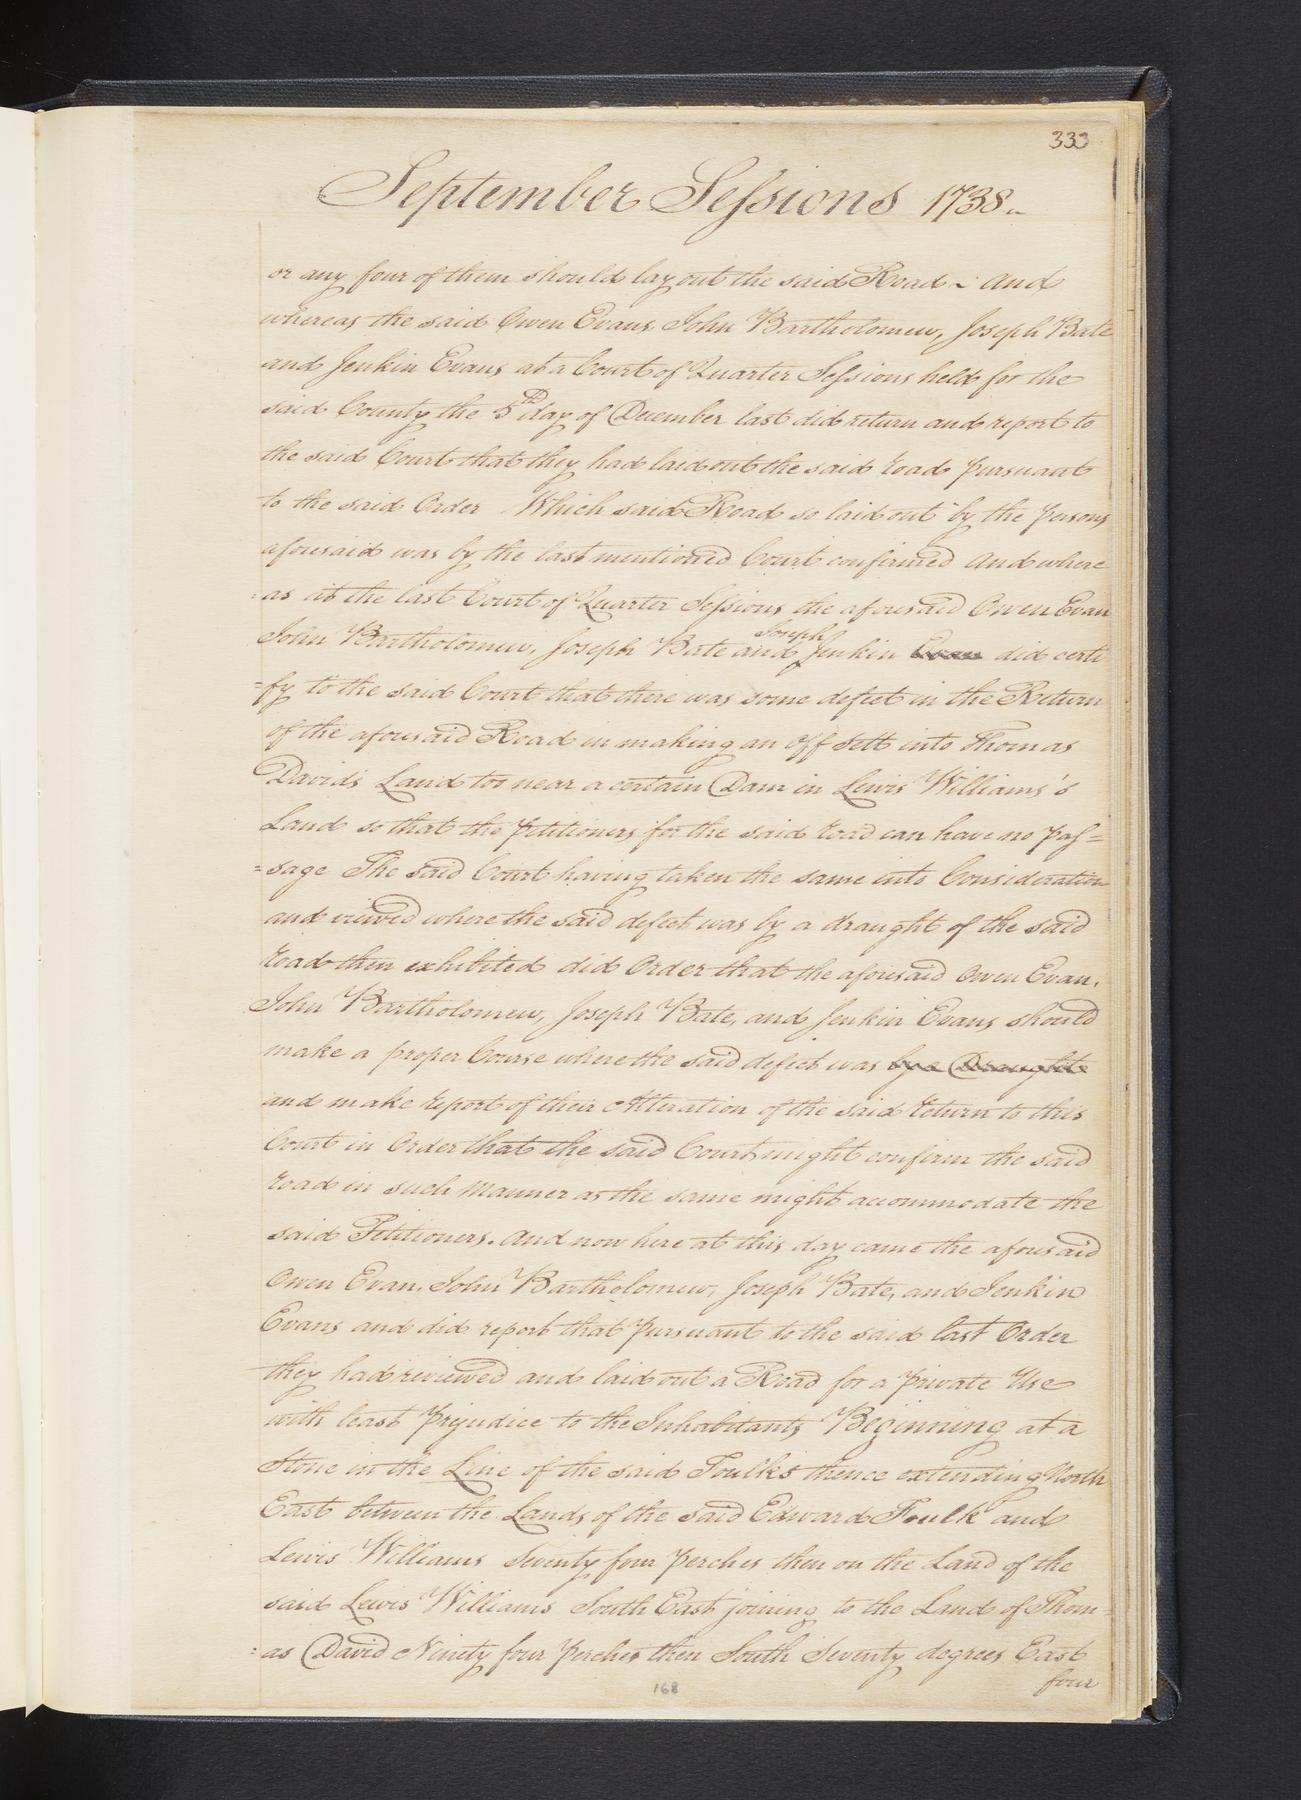 333
September Sessions 1738
or any four of them should lay out the said Road ~ And
whereas the said Owen Evans, John Bartholomew, Joseph Bate
and Jenkin Evans at a Court of Quarter Sessions held for the
said County the 5th day of December last did return and report to
the said Court that they had laid out the said road pursuant
to the said Order Which said Road so laid out by the persons
aforesaid was by the last mentioned Court confirmed And where
=as at the last Court of Quarter Sessions the aforesaid Owen Evan
Joseph
John Bartholomew, Joseph Bate and Jenkin Evan did certi
=fy to the said Court that there was some defect in the Return
of the aforesaid Road in making an off Sett into Thomas
David's Land too near a certain Dam in Lewis Williams's
Land so that the petitioners for the said road can have no pas=
=sage The said Court having taken the same into Consideration
and viewed where the said defect was by a draught of the said
road then exhibited did Order that the aforesaid Owen Evan,
John Bartholomew, Joseph Bate, and Jenkin Evans should
make a proper Course where the said defect was by a Draught
and make report of their Alteration of the said return to this
Court in Order that the said Court might confirm the said
road in such manner as the same might accommodate the
said Petitioners. And now here at this day came the aforesaid
Owen Evan, John Bartholomew, Joseph Bate, and Jenkin
Evans and did report that pursuant to the said last Order
they had reviewed and laid out a Road for a private Use
with least prejudice to the Inhabitants Beginning at a
Stone in the Line of the said Foulks thence extending North
East between the Lands of the said Edward Foulk and
Lewis Williams Seventy four perches then on the Land of the
said Lewis Williams South East joining to the Land of Thom=
=as David Ninety four perches then South Seventy degrees East
four
168